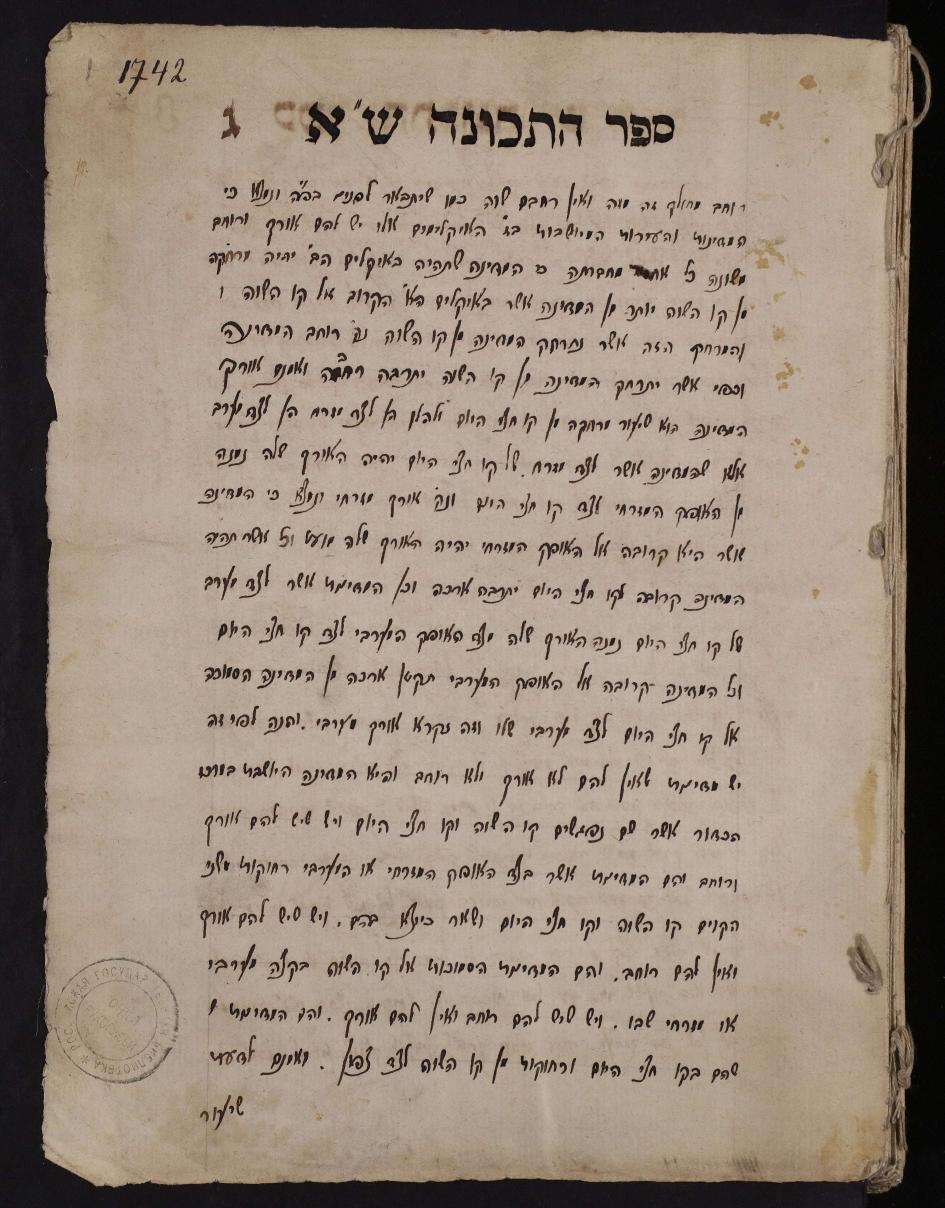 1742
ספר התכונה ש"א ג
רוחב מחולף זה מזה ואין רחבם שוה כמו שיתבאר לפנים בע"ה ונמצא כי
המדינות והעירות המיושבות בז' האיקלימים אלו יש להם אורך ורוחב
משונה כל אחת מחברתה כי המדינה שתהיה באיקלים הב' יהיה מרחקה
מן קו השוה יותר מן המדינה אשר באיקלים הא' הקרוב אל קו השוה ו
והמרחק הזה אשר נתרחק המדינה מן קו השוה נק' רוחב המדינה
וכפי אשר יתרחק המדינה מן קו השוה יתרבה רחבה ואמנם אורך
המדינה הוא שיעור מרחקה מן קו חצי היום ולהלן הן לצד מזרח הן לצד מערב
אלא שהמדינה אשר לצד מזרח של קו חצי היום יהיה האורך שלה נמנה
מן האופק המזרחי לצד קו חצי היום ונק' אורך מזרחי ונמצא כי המדינה
אשר היא קרובה אל האופק המזרחי יהיה האורך שלה מועט וכל אשר תהיה
המדינה קרובה לקו חצי היום יתרבה ארכה וכן המדינות אשר לצד מערב
של קו חצי היום נמנה האורך שלה מצד האופק המערבי לצד קו חצי היום
וכל המדינה קרובה אל האופק המערבי תקטן ארכה מן המדינה הסמוכה
אל קו חצי היום לצד מערבי שלו וזה נקרא אורך מערבי . והנה לפי זה
יש מדינות שאין להם לא אורך ולא רוחב והיא המדינה היושבת במרכז
הכדור אשר שם נפגשים קו השוה וקו חצי היום ויש שיש להם אורך
ורוחב והם המדינות אשר בצד האופק המזרחי או המערבי רחוקות משני
הקוים קו השוה וקו חצי היום ושאר כיוצא בהם . ויש שיש להם אורך
ואין להם רוחב . והם המדינות הסמוכות אל קו השוה בקצה מערבי
או מזרחי שבו . ויש שיש להם רוחב ואין להם אורך . והם המדינות
שהם בקו חצי היום ורחוקות מן קו השוה לצד צפון . ואמנם לדעת
שיעור